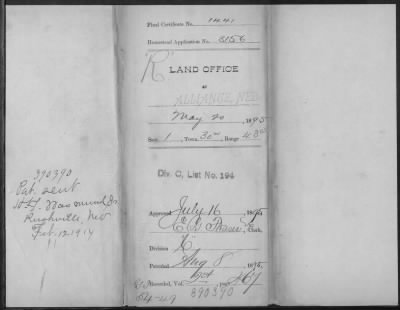 Final Certificate No. 1441
Homestead Application No. 5156
"R"
LAND OFFICE
at
ALLIANCE, NEB
May 20, 1895
Sec. 1, Town. 30, Range 48
Div. C, List No. 194
Approved July 16, 1895
Clerk.
Division K
Patented Aug 8, 1895.
Recorded, Vol. page 467
390390
390390
Pat. sent
Rushville, Neb
Feb. 12 1914